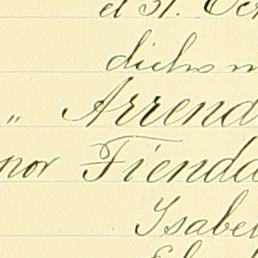 el 31. Oc
dichs m
" Arrend
por Tienda
Isabel